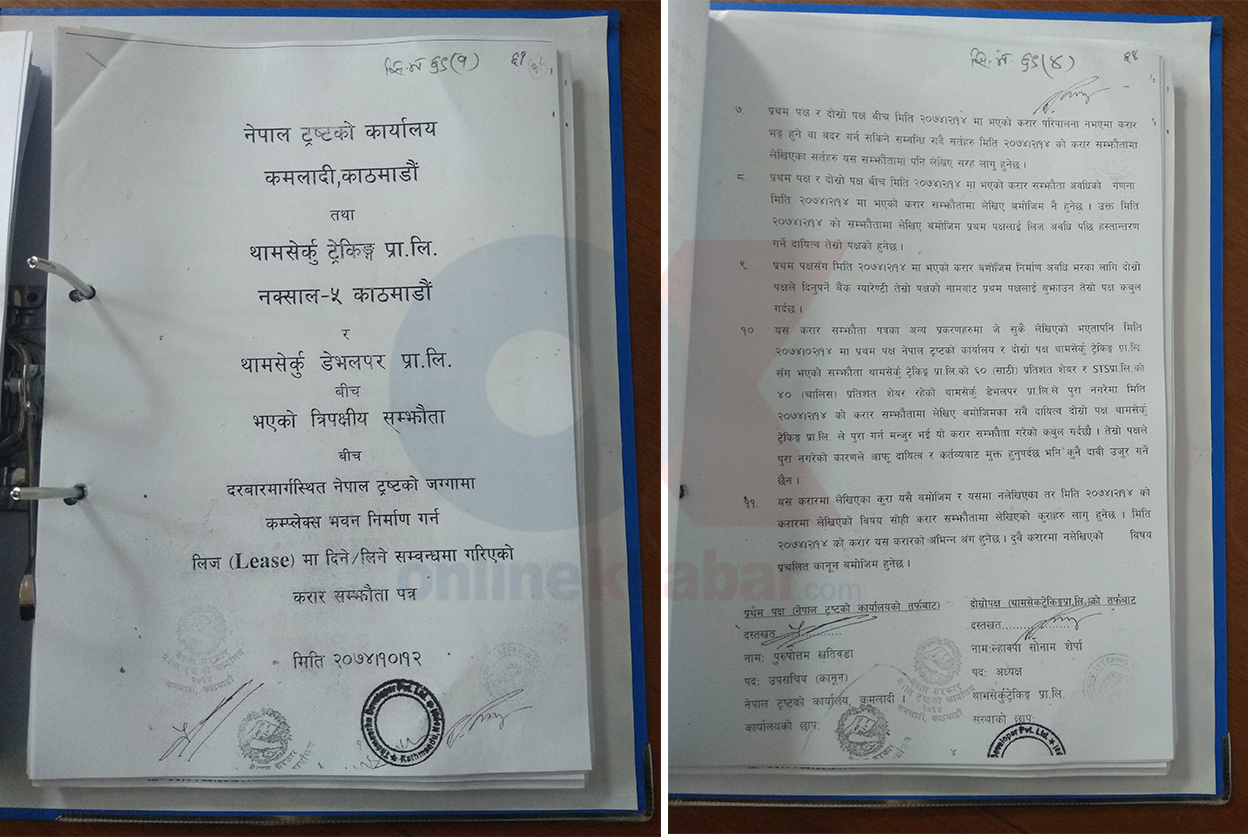 ६१
नेपाल ट्रष्टको कार्यालय
कमलादी,काठमाडौं
तथा
थामसेर्कु ट्रेकिङ्ग प्रा.लि.
नक्साल-५ काठमाडौं
र
थामसेर्कु डेभलपर प्रा.लि.
बीच
भएको त्रिपक्षीय सम्झौता
बीच
दरबारमार्गस्थित नेपाल ट्रष्टको जग्गामा
कम्प्लेक्स भवन निर्माण गर्न
लिज (Lease) मा दिने/लिने सम्वन्धमा गरिएको
करार सम्झौता पत्र
मिति २०७४।१०।१२
Thamserku Developer Pvt. Ltd.
Kathmandu, Nepal
६४
७. प्रथम पक्ष र दोस्रो पक्ष बीच मिति २०७४।२।१४ मा भएको करार परिपालना नभएमा करार
भङ्ग हुने वा बदर गर्न सकिने सम्वन्धि सवै सर्तहरु मिति २०७४।२।१४ को करार सम्झौतामा
लेखिएका सर्तहरु यस सम्झौतामा पनि लेखिए सरह लागु हुनेछ ।
८. प्रथम पक्ष र दोस्रो पक्ष बीच मिति २०७४।२।१४ मा भएको करार सम्झौता अवधिको गणना
मिति २०७४।२।१४ मा भएको करार सम्झौतामा लेखिए बमोजिम नै हुनेछ । उक्त मिति
२०७४।२।१४ को सम्झौतामा लेखिए बमोजिम प्रथम पक्षलाई लिज अवधि पछि हस्तान्तरण
गर्ने दायित्व तेस्रो पक्षको हुनेछ ।
९. प्रथम पक्षसँग मिति २०७४।२।१४ मा भएको करार बमोजिम निर्माण अवधि भरका लागि दोस्रो
पक्षले दिनुपर्ने बैंक ग्यारेण्टी तेस्रो पक्षको नामबाट प्रथम पक्षलाई बुझाउन तेस्रो पक्ष कबुल
गर्दछ ।
१० यस करार सम्झौता पत्रका अन्य प्रकरणहरुमा जे सुकै लेखिएको भएतापनि मिति
२०७४।०२।१४ मा प्रथम पक्ष नेपाल ट्रष्टको कार्यालय र दोस्रो पक्ष थामसेर्कु ट्रेकिङ्ग प्रा.लि.
सँग भएको सम्झौता थामसेर्कु ट्रेकिङ्ग प्रा.लि.को ६० (साठी) प्रतिशत शेयर र STSप्रा.लि.को
४० (चालिस) प्रतिशत शेयर रहेको थामसेर्कु डेभलपर प्रा.लि.ले पुरा नगरेमा मिति
२०७४।२।१४ को करार सम्झौतामा लेखिए बमोजिमका सवै दायित्व दोस्रो पक्ष थामसेर्कु
ट्रेकिङ्ग प्रा.लि. ले पुरा गर्न मन्जुर भई यो करार सम्झौता गरेको कबुल गर्दछौ । तेस्रो पक्षले
पुरा नगरेको कारणले आफू दायित्व र कर्तव्यबाट मुक्त हुनुपर्दछ भनि कुनै दावी उजुर गर्ने
छैन ।
११. यस करारमा लेखिएका कुरा यसै बमोजिम र यसमा नलेखिएका तर मिति २०७४।२।१४ को
करारमा लेखिएको विषय सोही करार सम्झौतामा लेखिएको कुराहरु लागु हुनेछ । मिति
२०७४।२।१४ को करार यस करारको अभिन्न अंग हुनेछ । दुवै करारमा नलेखिएको विषय
प्रचलित कानून बमोजिम हुनेछ ।
प्रथम पक्ष (नेपाल ट्रष्टको कार्यालयको तर्फबाट)
दस्तखत
नामः पुरुषोत्तम खतिवडा
पदः उपसचिव (कानून)
नेपाल ट्रष्टको कार्यालय, कमलादी ।
कार्यालयको छापः
दोस्रोपक्ष (थामसेर्कुट्रेकिङ्गप्रा.लि.)को तर्फबाट
दस्तखत
नामःल्हाक्पा सोनाम शेर्पा
पदः अध्यक्ष
थामसेर्कुट्रेकिङ्ग प्रा.लि.
संस्थाको छापः
Developer Pvt. Ltd.
४
onlinekhabar.com